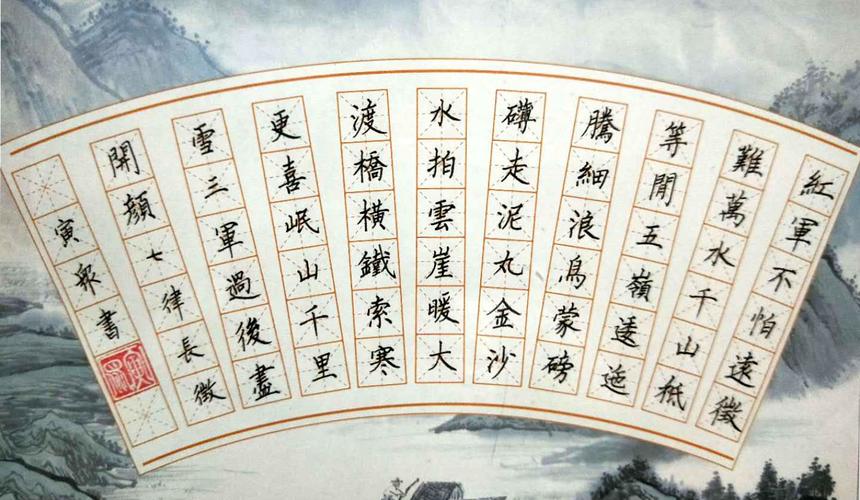 紅軍不怕遠徵
難萬水千山祗
等閒五嶺逶迤
騰細浪烏蒙磅
礡走泥丸金沙
水拍雲崖暖大
渡橋橫鐵索寒
更喜岷山千里
雪三軍過後盡
開顏七律長徵
寅書